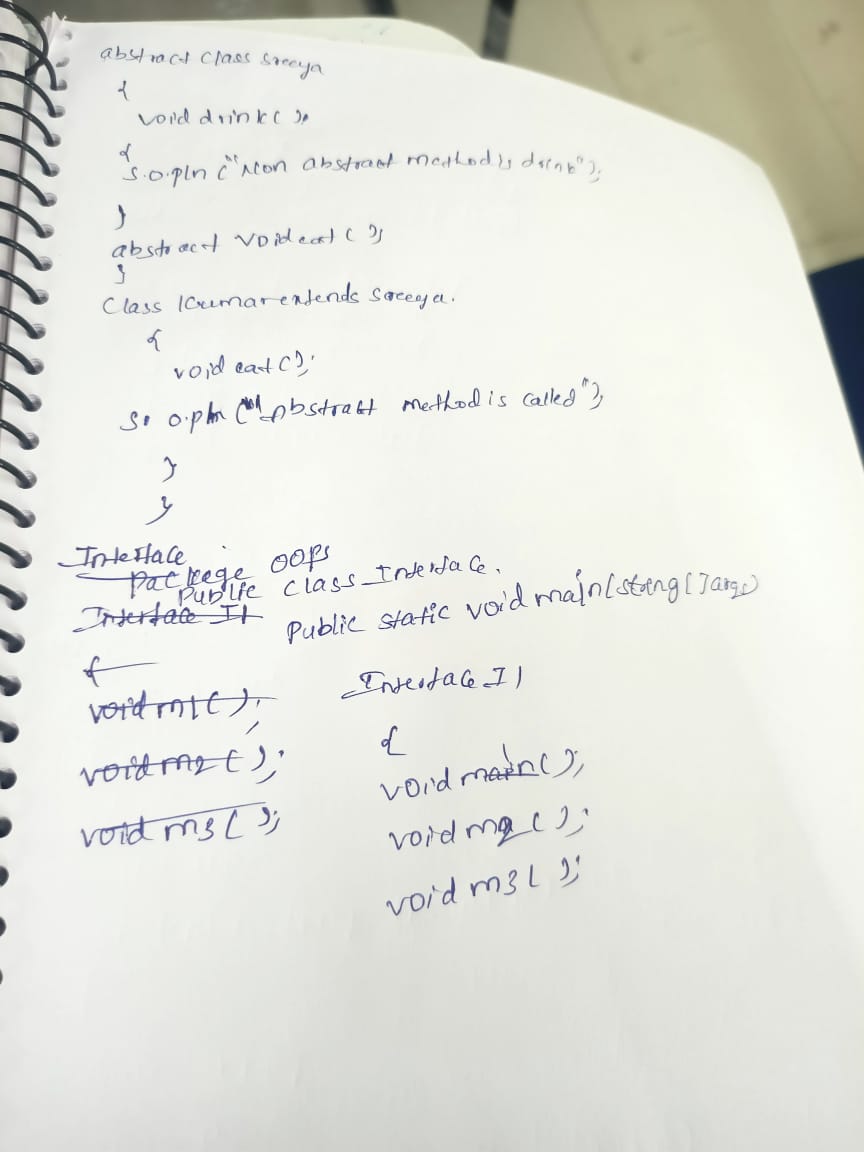 abstract class Sreeya
{
void drink( );
{
S.o.pln ("Non abstract method is drink");
}
abstract void eat ( );
}
Class Kumar extends Sreeya.
{
void eat();
S. o.pln ("Abstract method is called");
}
}
Interface
package OOPS
Public Class Interface.
Interface I1
Public static void main(string[]args)
{
void m1( );
void m2( );
void m3( );
Interface I1
{
void main();
void m2( );
void m3( );